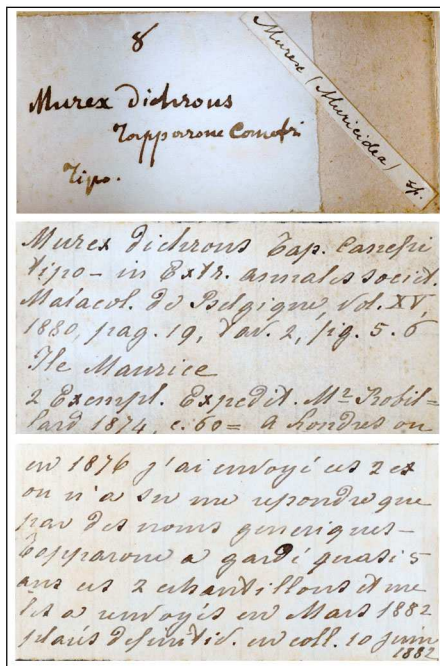 8
Murex dichrous
Tapparone Canefri
Tipo.
Murex (Muricidea) sp.
Murex dichrous Tap. Canefri
tipo - in Extr. annales societ.
Malacol. de Belgique, vol. XV,
1880, pag. 19, Tav. 2, fig. 5. 6
Ile Maurice
2 Exempl. Expedit. Mr Robil=
lard 1874, c. 60 = a Londres ou
en 1876 j'ai envoyé ces 2 ex
on n'a su me repondre que
par des noms generiques -
Tapparone a gardé quasi 5
ans ces 2 echantillons et me
les a renvoyés en Mars 1882
placés definitiv. en coll. 10 juin
1882